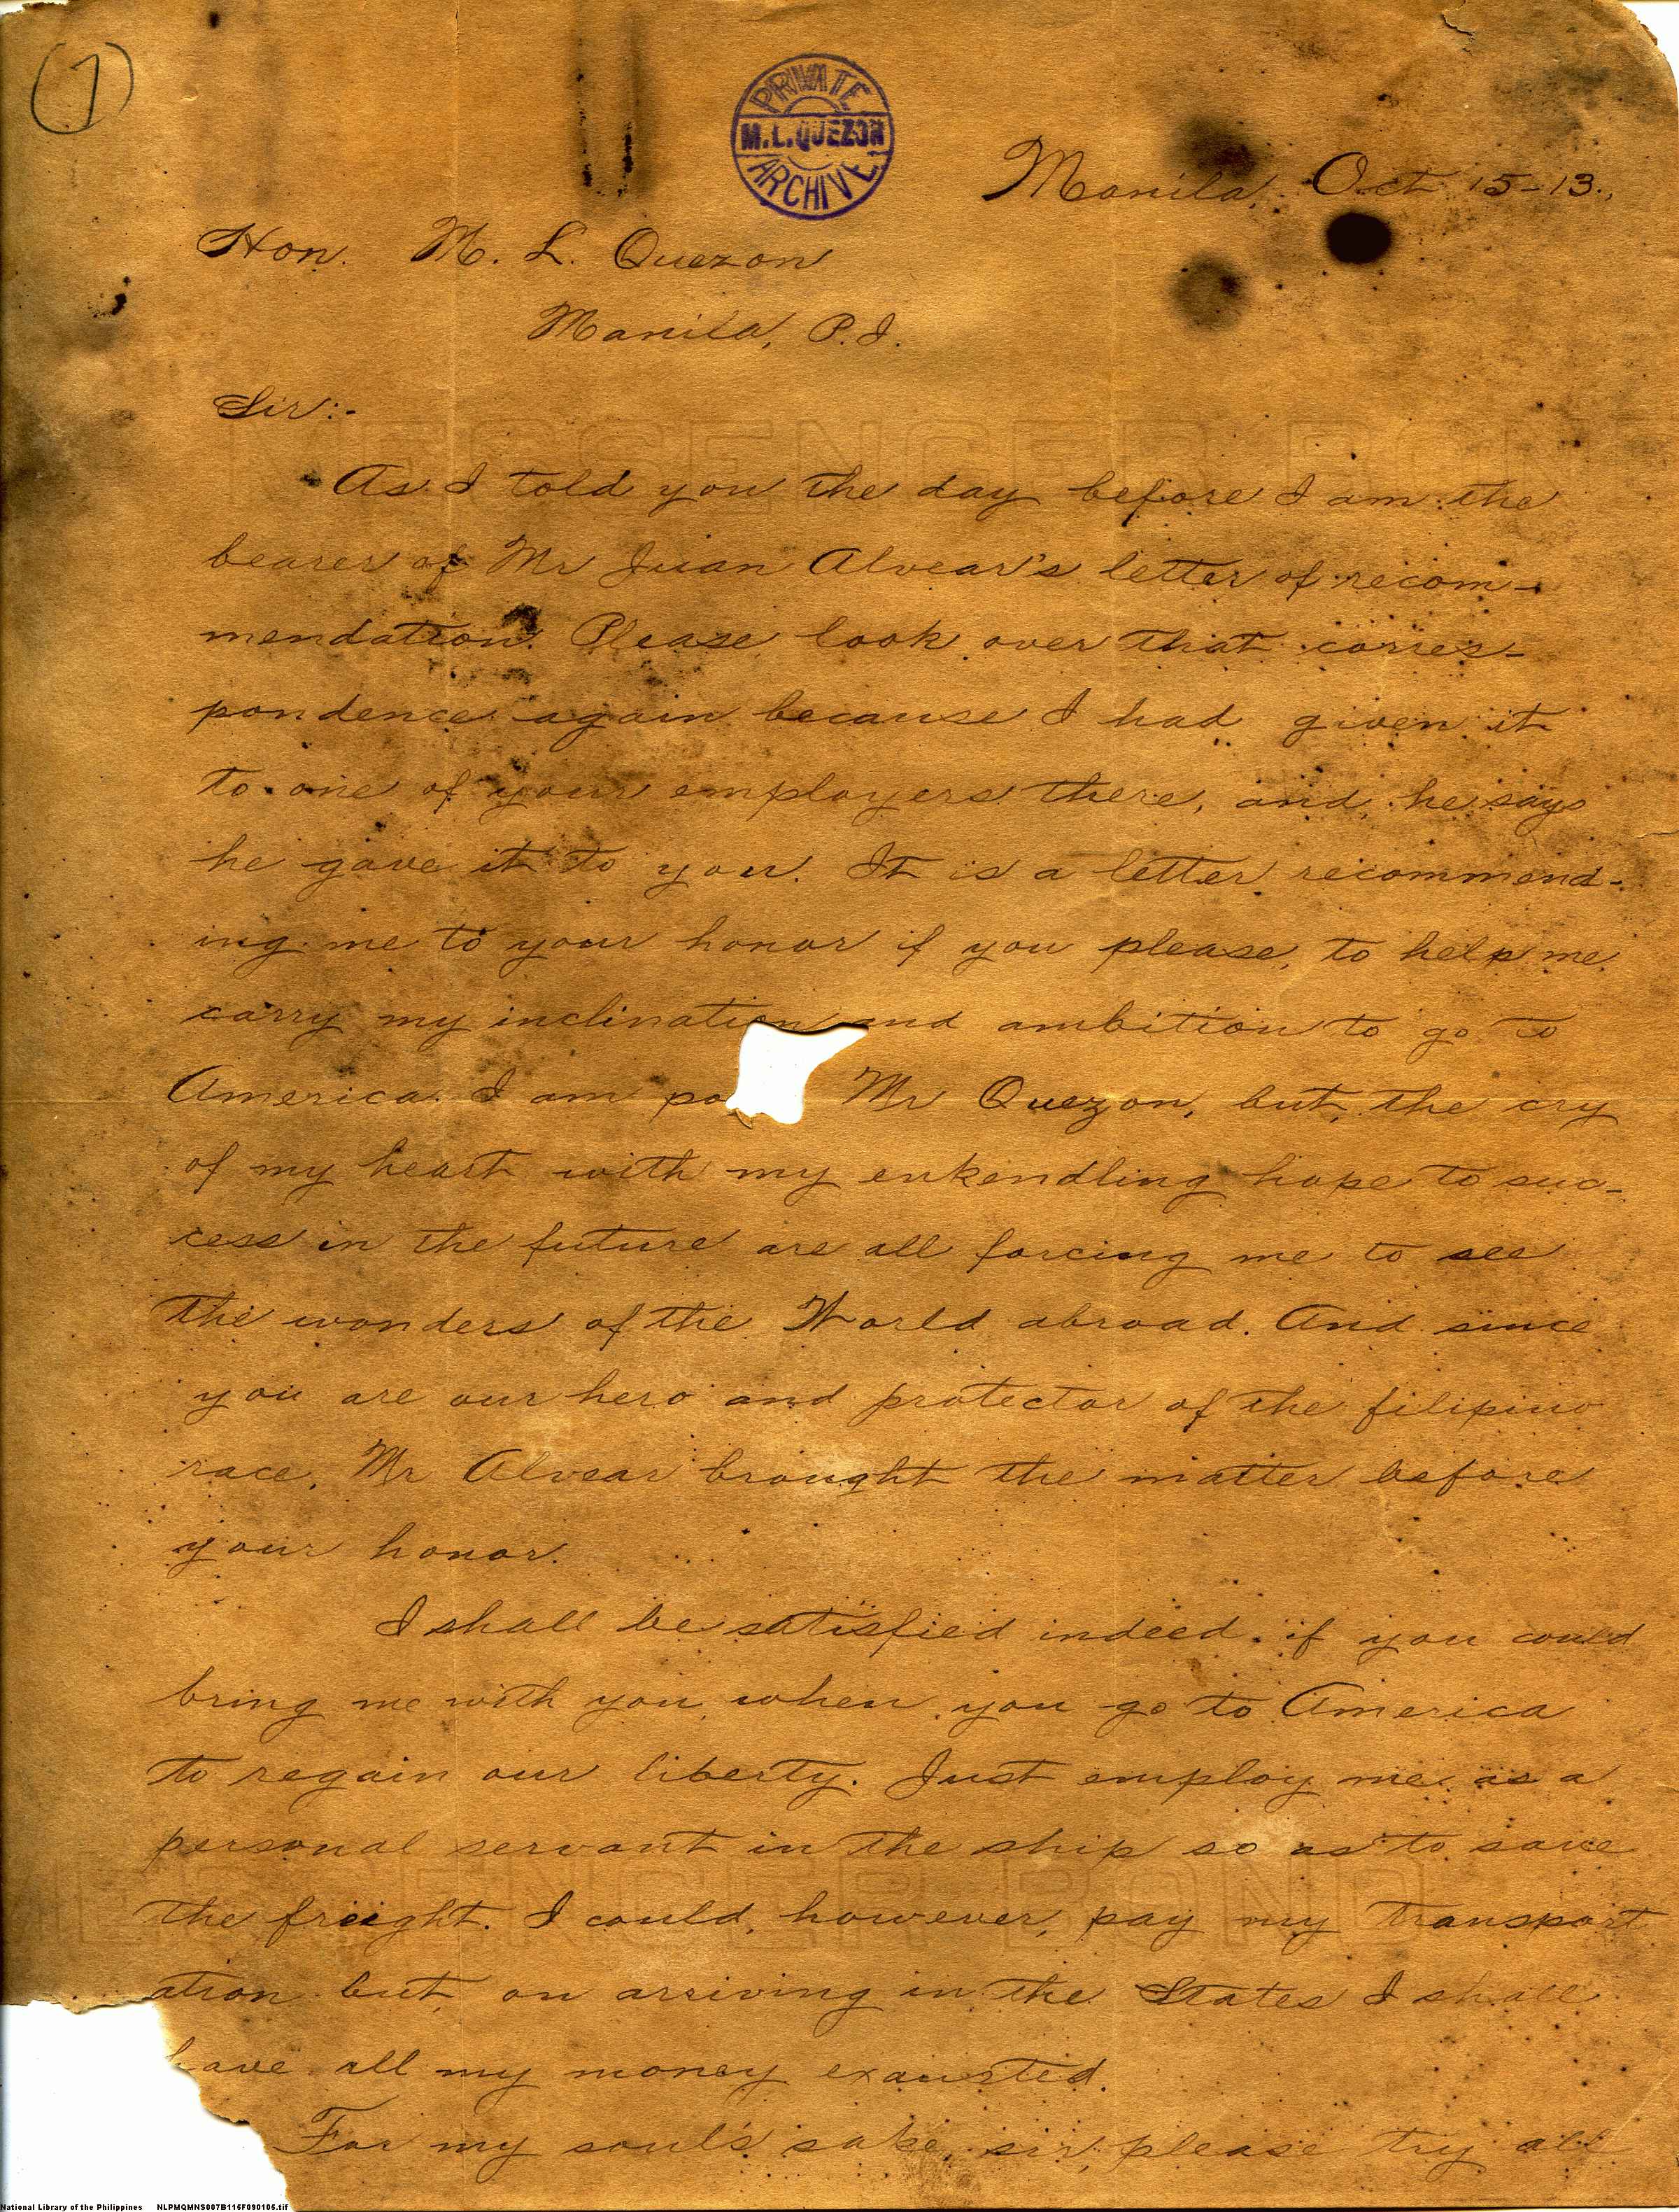 (7)
PRIVATE
M.L.QUEZON
ARCHIVE
Manila, Oct 15-13.
Hon. M. L. Quezon
Manila, P.I.
Sir:-
MESSENGER BOND
As I told you the day before I am the
bearer of Mr Juan Alvear's letter of recom-
mendation. Please look over that corres-
pondence again because I had given it
to one of your employers there, and he says
he gave it to you. It is a letter recommend-
ing me to your honor if you please, to help me
carry my inclination and ambition to go to
America. I am po Mr Quezon, but, the cry
of my heart with my enkendling hope to suc-
cess in the future are all forcing me to see
the wonders of the World abroad. And since
you are our hero and protector of the filipino
race, Mr Alvear brought the matter before
your honor.
I shall be satisfied indeed, if you could
bring me with you when you go to America
to regain our liberty. Just employ me as a
personal servant in the ship so as to save
the freight. I could, however, pay my transport
ation but, on arriving in the States I shall
have all my money exausted.
For my soul's sake, sir, please try all
National Library of the Philippines NLPMQMNS007B115F090105.tif